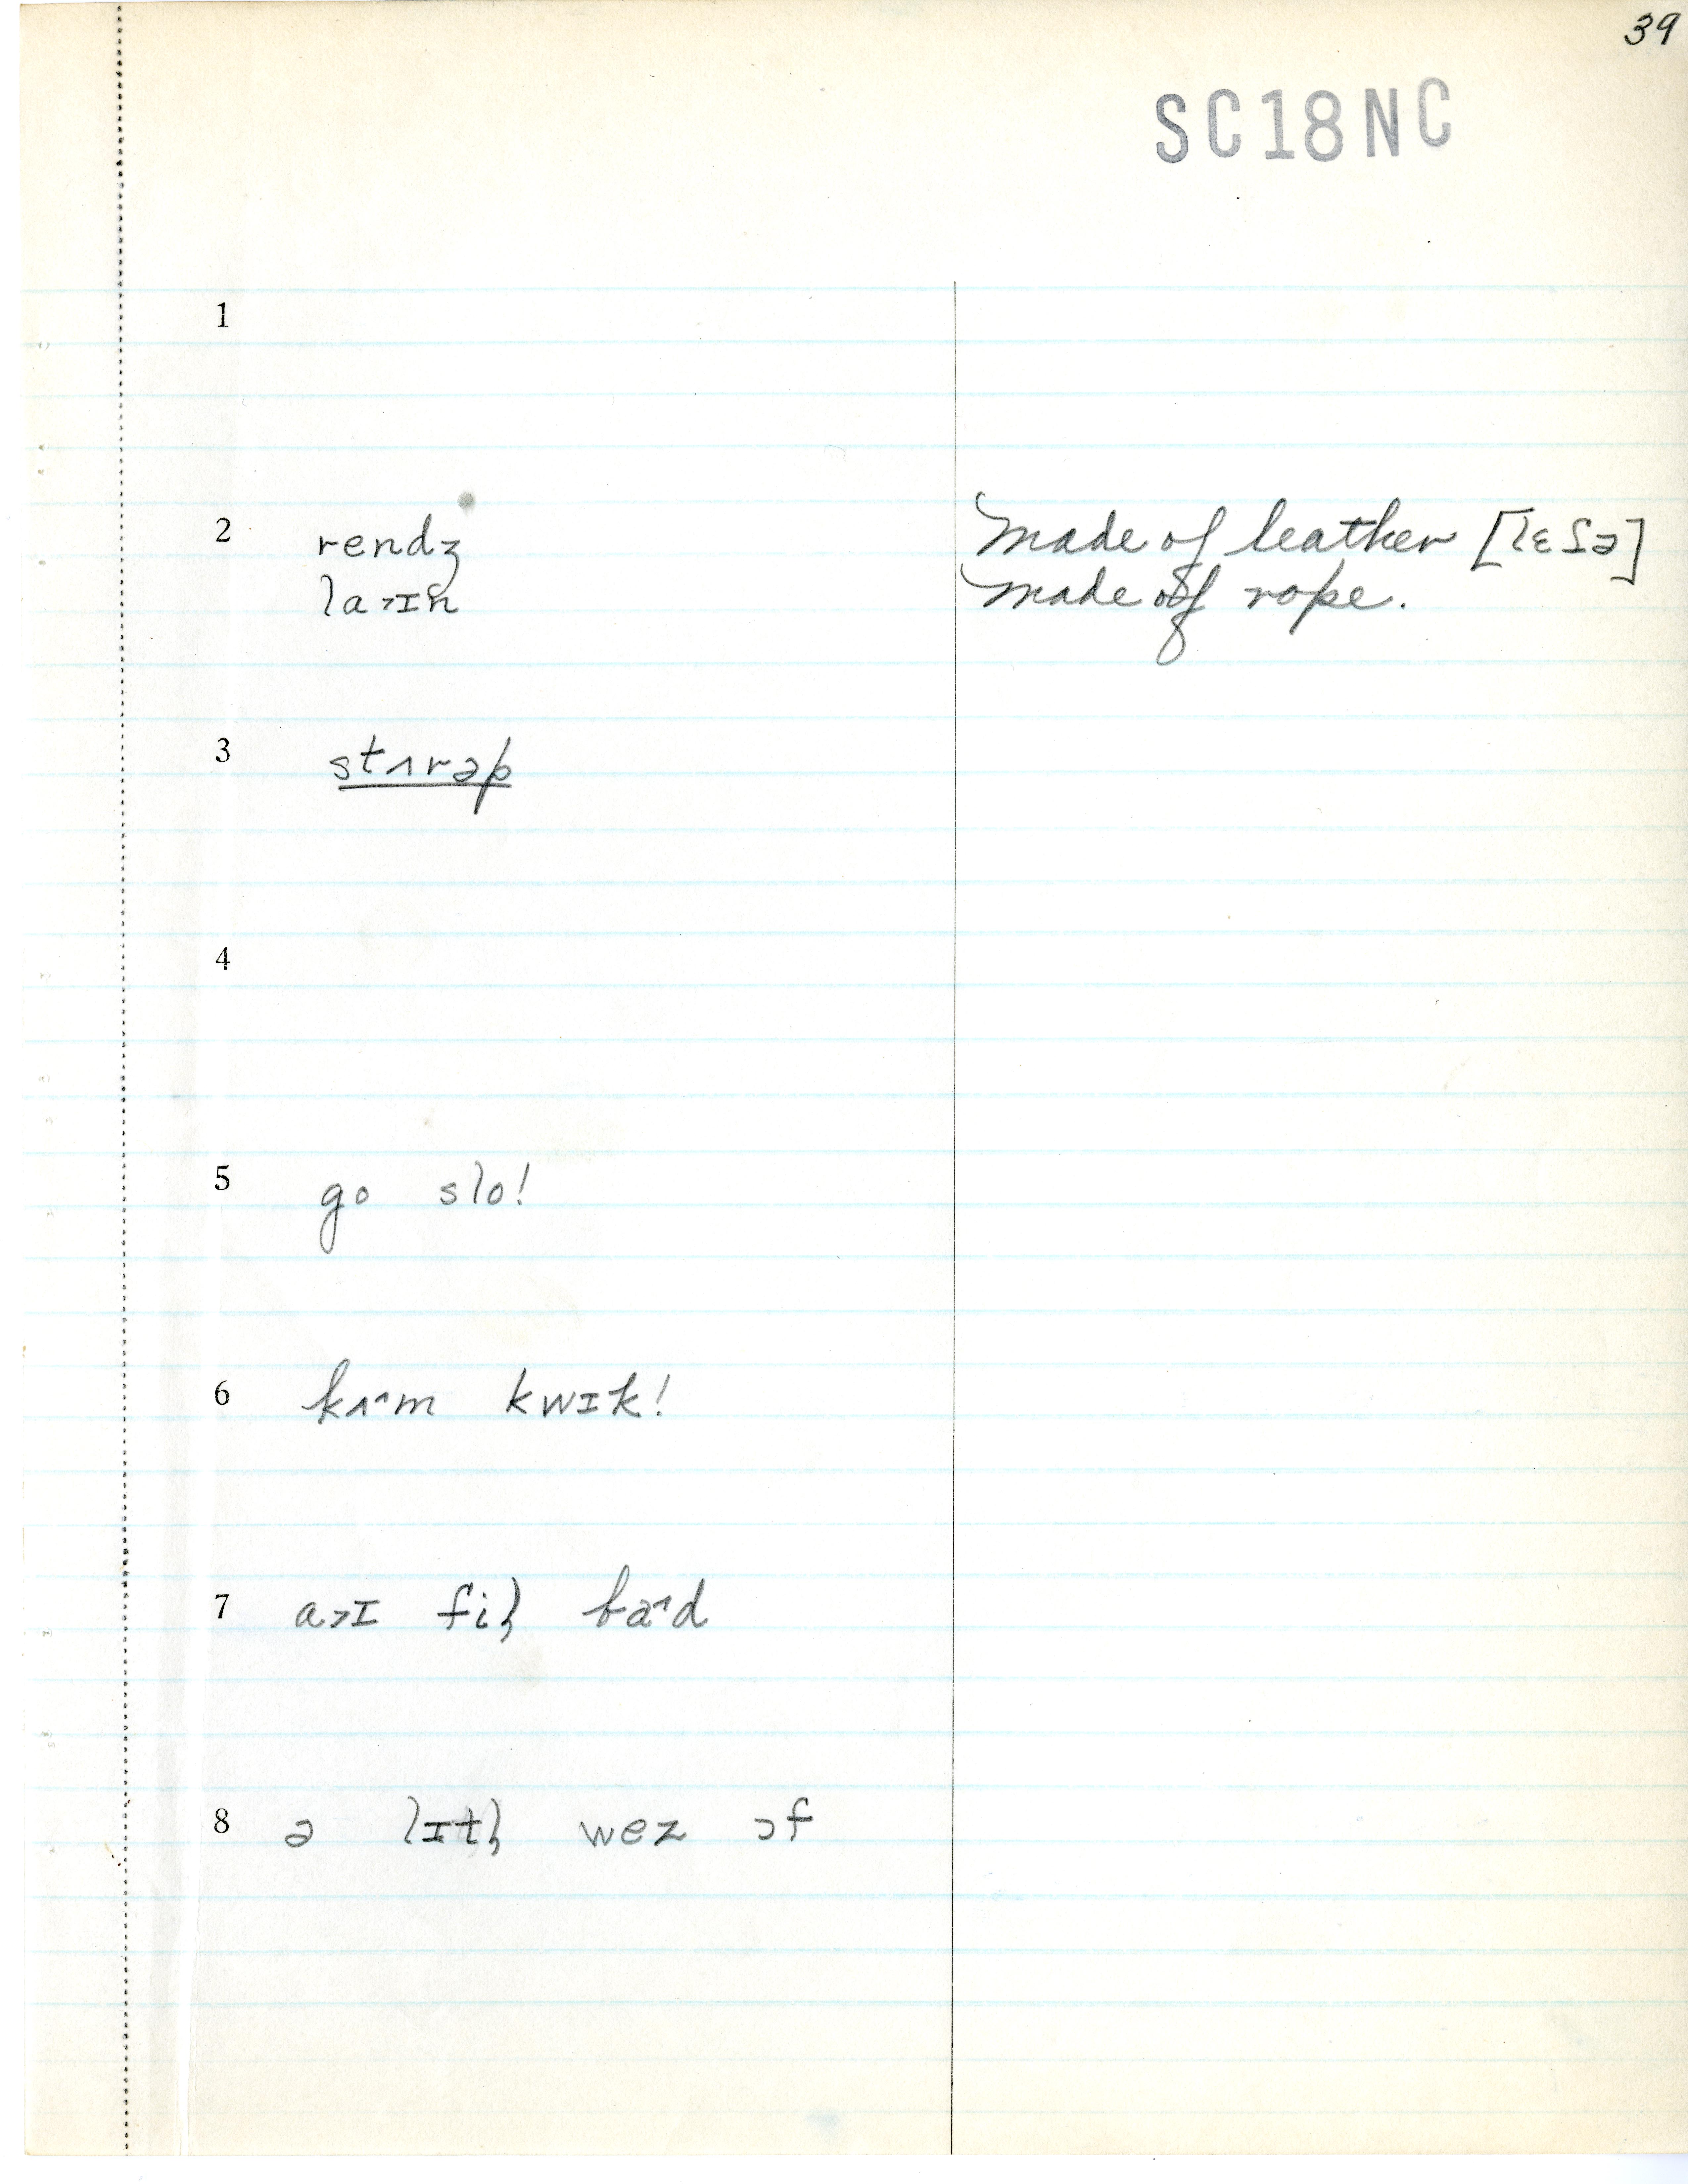 39
SC18NC
1
2 rendz made of leather [lɛðə]
la˃ɪn made of rope.
3 stʌrəp
4
5 go slo!
6 kʌ˄m kwɪk!
7 a˃ɪ fil̩ ba˄d
8 ə lɪtl̩ wez ɔf